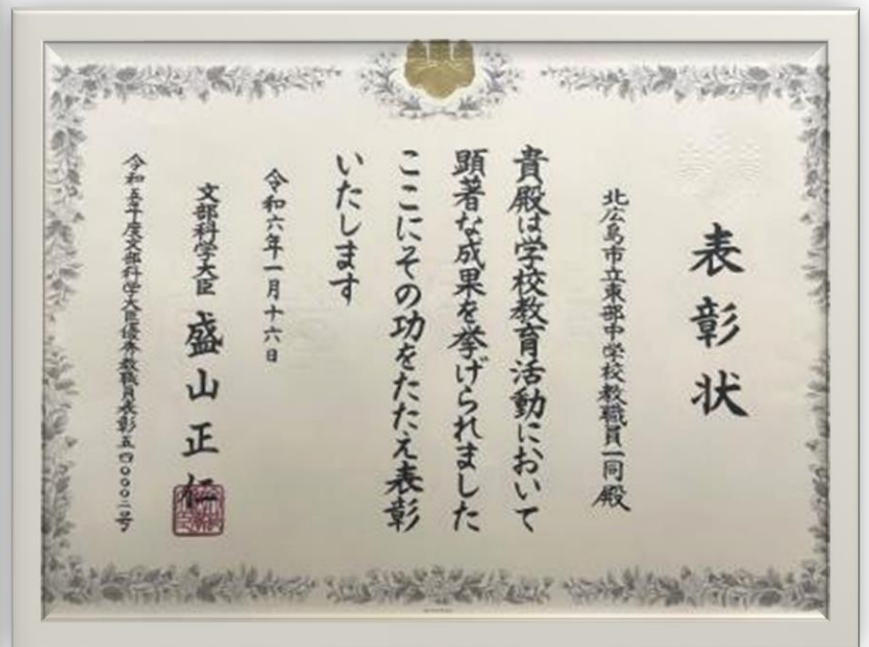 表彰状
北広島市立東部中学校教職員一同殿
貴殿は学校教育活動において
顕著な成果を挙げられました
ここにその功をたたえ表彰
いたします
令和六年一月十六日
文部科学大臣 盛山正仁
令和五年度文部科学大臣優秀教職員表彰五四〇〇〇二号